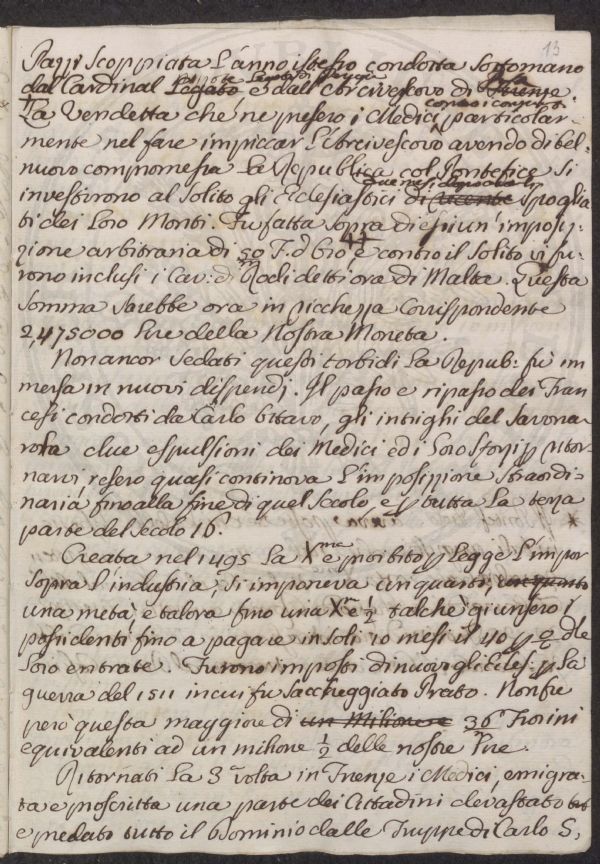 13
Pazzi scoppiata l'anno istesso condotta sottomano
dal Cardinal Legato e dall'Arcivescovo di
La vendetta che ne presero i Medici particolar-
contro i congiurati
mente nel fare impiccar l'Arcivescovo avendo di bel
nuovo compromessa la Repubblica col Pontefice si
due mesi dopo
investirono al solito gli Eclesiastici di spoglia
ti dei loro Monti. Fu fatta sopra di essi un' imposi-
zione arbitraria di 50 e contro il solito vi fu-
rono inclusi i Cav: di Rodi detti ora di Malta. Questa
somma sarebbe ora in ricchezza corrispondente
2,475000 lire della nostra Moneta.
Non ancor sedati questi torbidi la Repub: fu im
mersa in nuovi dispendj. Il passo e ripasso dei Fran
cesi condotti da Carlo ottavo, gli intrighi del Savona
rola due espulsioni dei Medici ed i loro sforzi p ritor-
narvi, resero quasi continova l'imposizione straordi-
naria fino alla fine di quel secolo, e p tutta la terza
parte del secolo 16.
Creata nel 1495 la Xma e proibito p legge l'impor
sopra l'industria, si imponeva un quarto, un quinto
una metà, e talora fino una Xma e ½ talche giunsero i
possidenti fino a pagare in soli 10 mesi il 40 p % dle
loro entrate. Furono imposti di nuovo gli Eclesi: p la
guerra del 1511 in cui fu saccheggiato Prato. Non fu
però questa maggiore di un Milione e 36m Fiorini
equivalenti ad un milione ½ delle nostre lire.
Ritornati la 3a volta in Firenze i Medici, emigra-
ta e proscritta una parte dei Cittadini devastato
e predato tutto il Dominio dalle Truppe di Carlo 5,